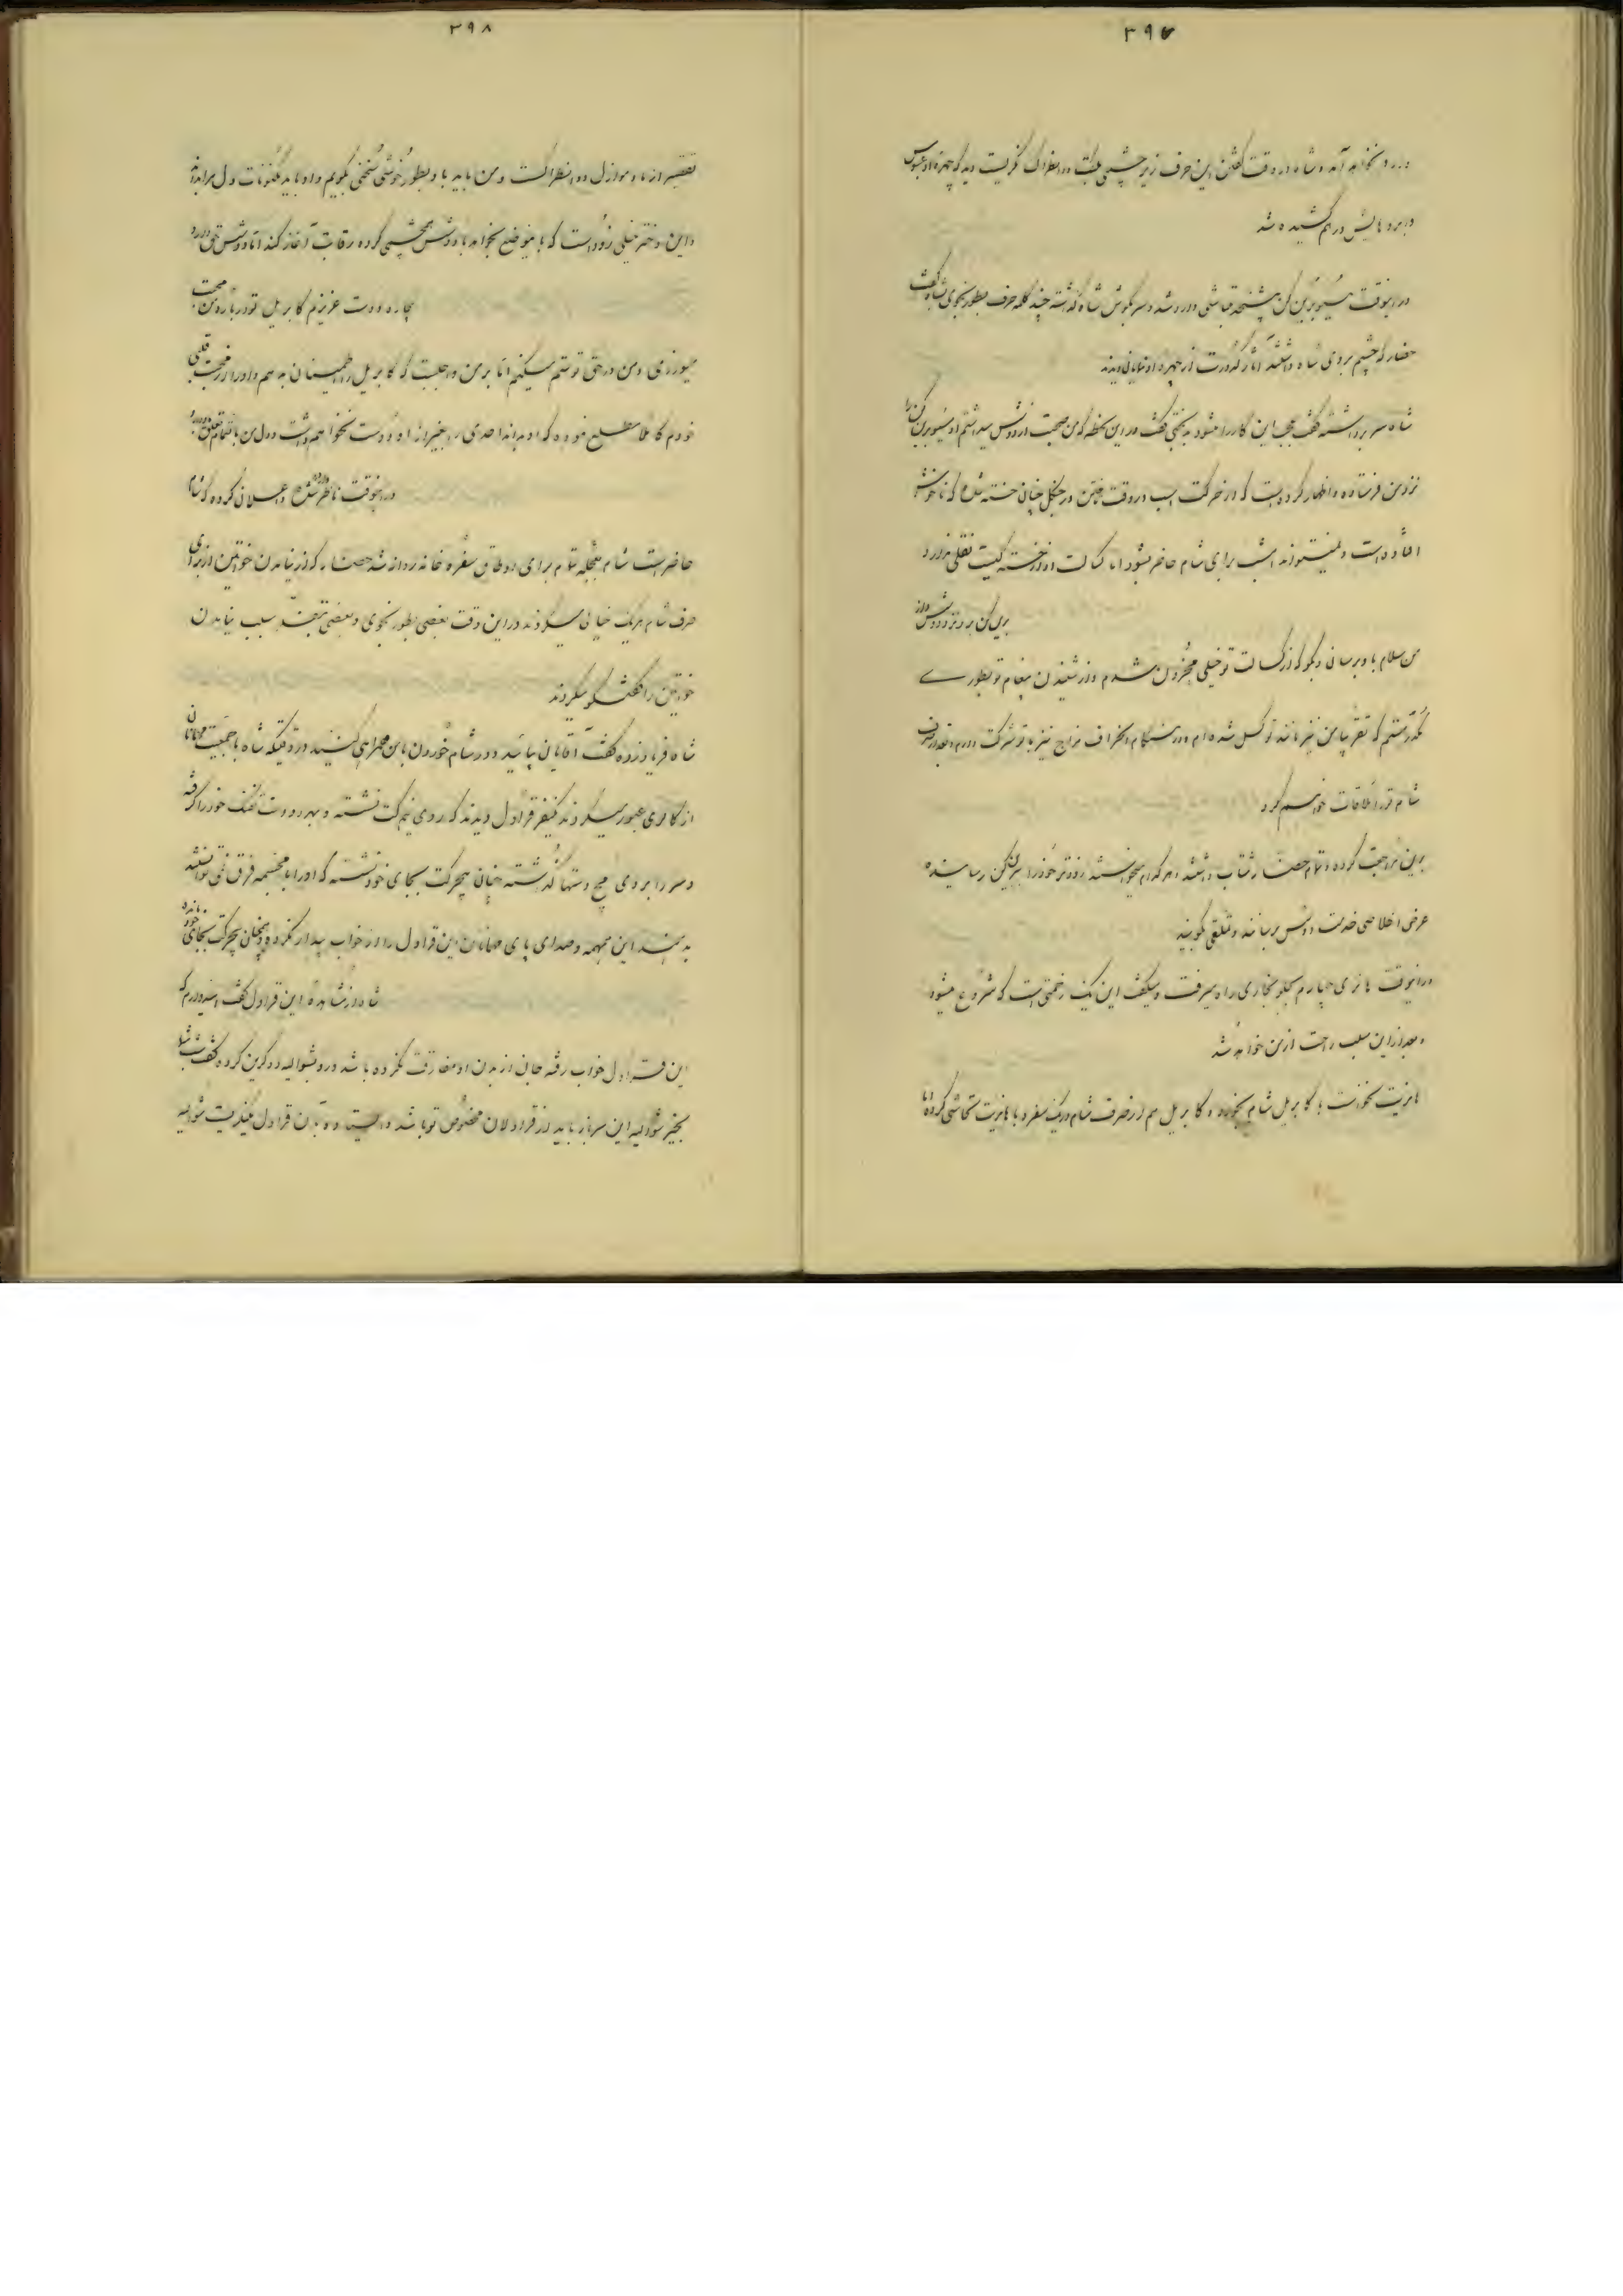 ۳۹۷
نخواهد آمد و شاه در وقت گفتن این حرف زیر چشمی بلتفت در انظراک نگریست دید که چهره او عبوس
و ابروهایش در هم کشیده شد
در اینوقت مسیو برین کن پیشخدمتباشی وارد شد و سر بگوش شاه گذاشته چند کلمه حرف بطور نجوی بشاه گفت
حضار که چشم بروی شاه داشتند آثار کدورت از چهره او نمایان دیدند
شاه سر برداشته گفت عجب این کار را میشود بدبختی گفت در این لحظه که من صحبت از دوشس میداشتم او مسیو برین کن را
نزد من فرستاده و اظهار کرده است که از حرکت اسب در وقت رفتن در جنگل چنان خسته شده که ناخوش
افتاده است و نمیتواند امشب برای شام حاضر شود اما کسالت او از خستگیست نقلی ندارد
برین کن برو نزد دوشس و از
من سلام باو برسان و بگو که از کسالت تو خیلی محزون شدم و از شنیدن پیغام تو بطوری
مکدر هستم که تقریباً من نیز مانند تو کسل شده ام و در هنگام انحراف مزاج نیز با تو شرکت دارم و بعد از صرف
شام تو را ملاقات خواهم کرد
برین مراجعت کرده و تمام حضار شتاب داشتند و هر کدام میخواستند زودتر خود را ببرین کن رسانیده
عرض اخلاصی خدمت دوشس برسانند و تملقی بگویند
در اینوقت هانری چهارم جلو بخاری راه میرفت و میگفت این یک زحمتی است که شروع میشود
و بعد از این سلب راحت از من خواهد شد
هانریت نخواست با گابریل شام بخورد و گابریل هم از صرف شام در یک سفره با هانریت تحاشی کرده اما
۳۹۸
تقصیر از مادموازل دو انطراک است و من باید با او بطور خوشی سخنی بگویم و او باید مکنونات دل مرا بداند
و این دختر خیلی زود است که باینوضع بخواهد با دوشس همچشمی کرده رقابت آغاز کند اما دوشس حق دارد
بیچاره دوست عزیزم گابریل تو درباره من محبت
میورزی و من در حق تو ستم میکنم اما بر من واجبست که گابریل را اطمینان بدهم و او را از محبت قلبی
خودم کاملاً مطلع نموده که او بداند احدی را بغیر از او دوست نخواهم داشت و دل من باو تعلق دارد
در اینوقت ناظر وارد شده و اعلان کرده که شام
حاضر است شام بعجله تمام برای اوطاق سفره خانه روانه شد حضار که از نیامدن خواتین از برای
صرف شام هر یک خیالی میکردند در این وقت بعضی بطور نجوی و بعضی سبب نیامدن
خواتین را گفتگو میکردند
شاه فریاد زده گفت آقایان بیائید و در شام خوردن با من همراهی کنید در وقتیکه شاه با جمعیت مهمانان
از گالری عبور میکردند یکنفر قراول دیدند که روی نیم کت نشسته و بهر دو دست تفنگ خود را گرفته
و سر را بروی مچ دستها گذاشته چنان بیحرکت بجای خود نشسته که او را با مجسمه فرق نمی توانستند
بدهند این همهمه و صدای پای مهمانان این قراول را از خواب بیدار نکرده و همچنان بیحرکت بجای خود مانده
شاه از مشاهده این قراول گفت امیدوارم که
این قراول خواب رفته جان از بدن او مفارقت نکرده باشد و رو بشوالیه دو کرین کرده گفت شب شما
بخیر شوالیه این سرباز باید از قراولان مخصوص تو باشد و آن قراول میگذشت شوالیه